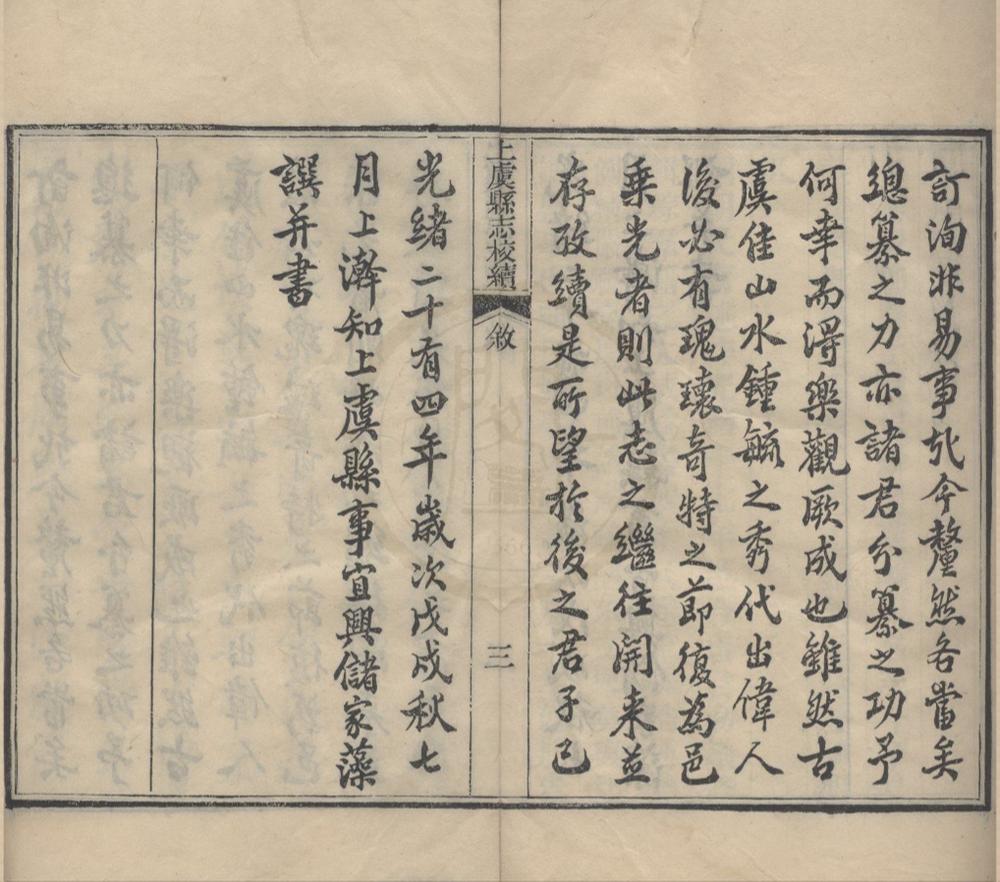 訂洵非易事然今釐然各當矣
總纂之力亦諸君分纂之功予
何幸而得樂觀厥成也雖然古
虞佳山水鍾毓之秀代出偉人
後必有瑰瓌奇特之節復為邑
乗光者則此志之繼往開来並
存攷續是所望於後之君子已
上虞縣志校續
敘
三
光緒二十有四年歲次戊戌秋七
月上澣知上虞縣事宜興儲家藻
譔并書